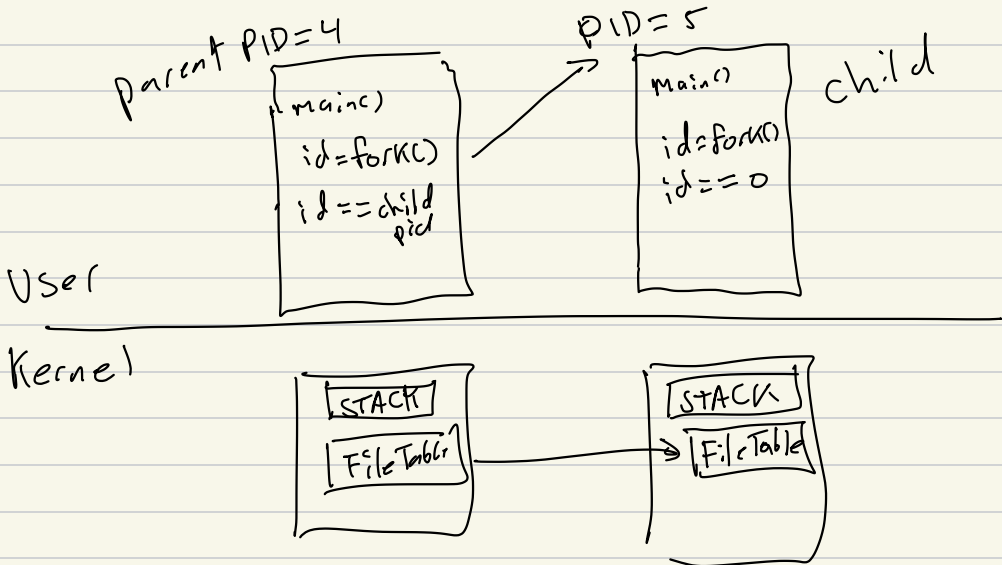 parent PID=4
main()
id=fork()
id==child
pid
PID=5
child
main()
id=fork()
id==0
User
Kernel
STACK
FileTable
STACK
FileTable